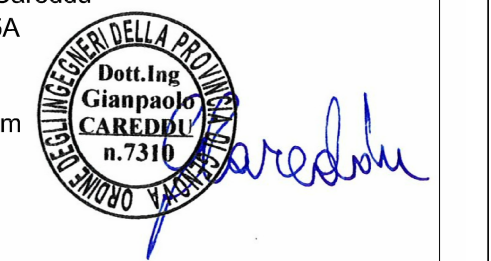 Careddu
SA
m
ORDINE DEGLI INGEGNERI DELLA PROVINCIA DI GENOVA
Dott.Ing
Gianpaolo
CAREDDU
n.7310
Careddu